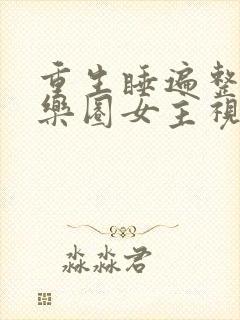 重生睡遍整
樂圈女主視
淼淼君